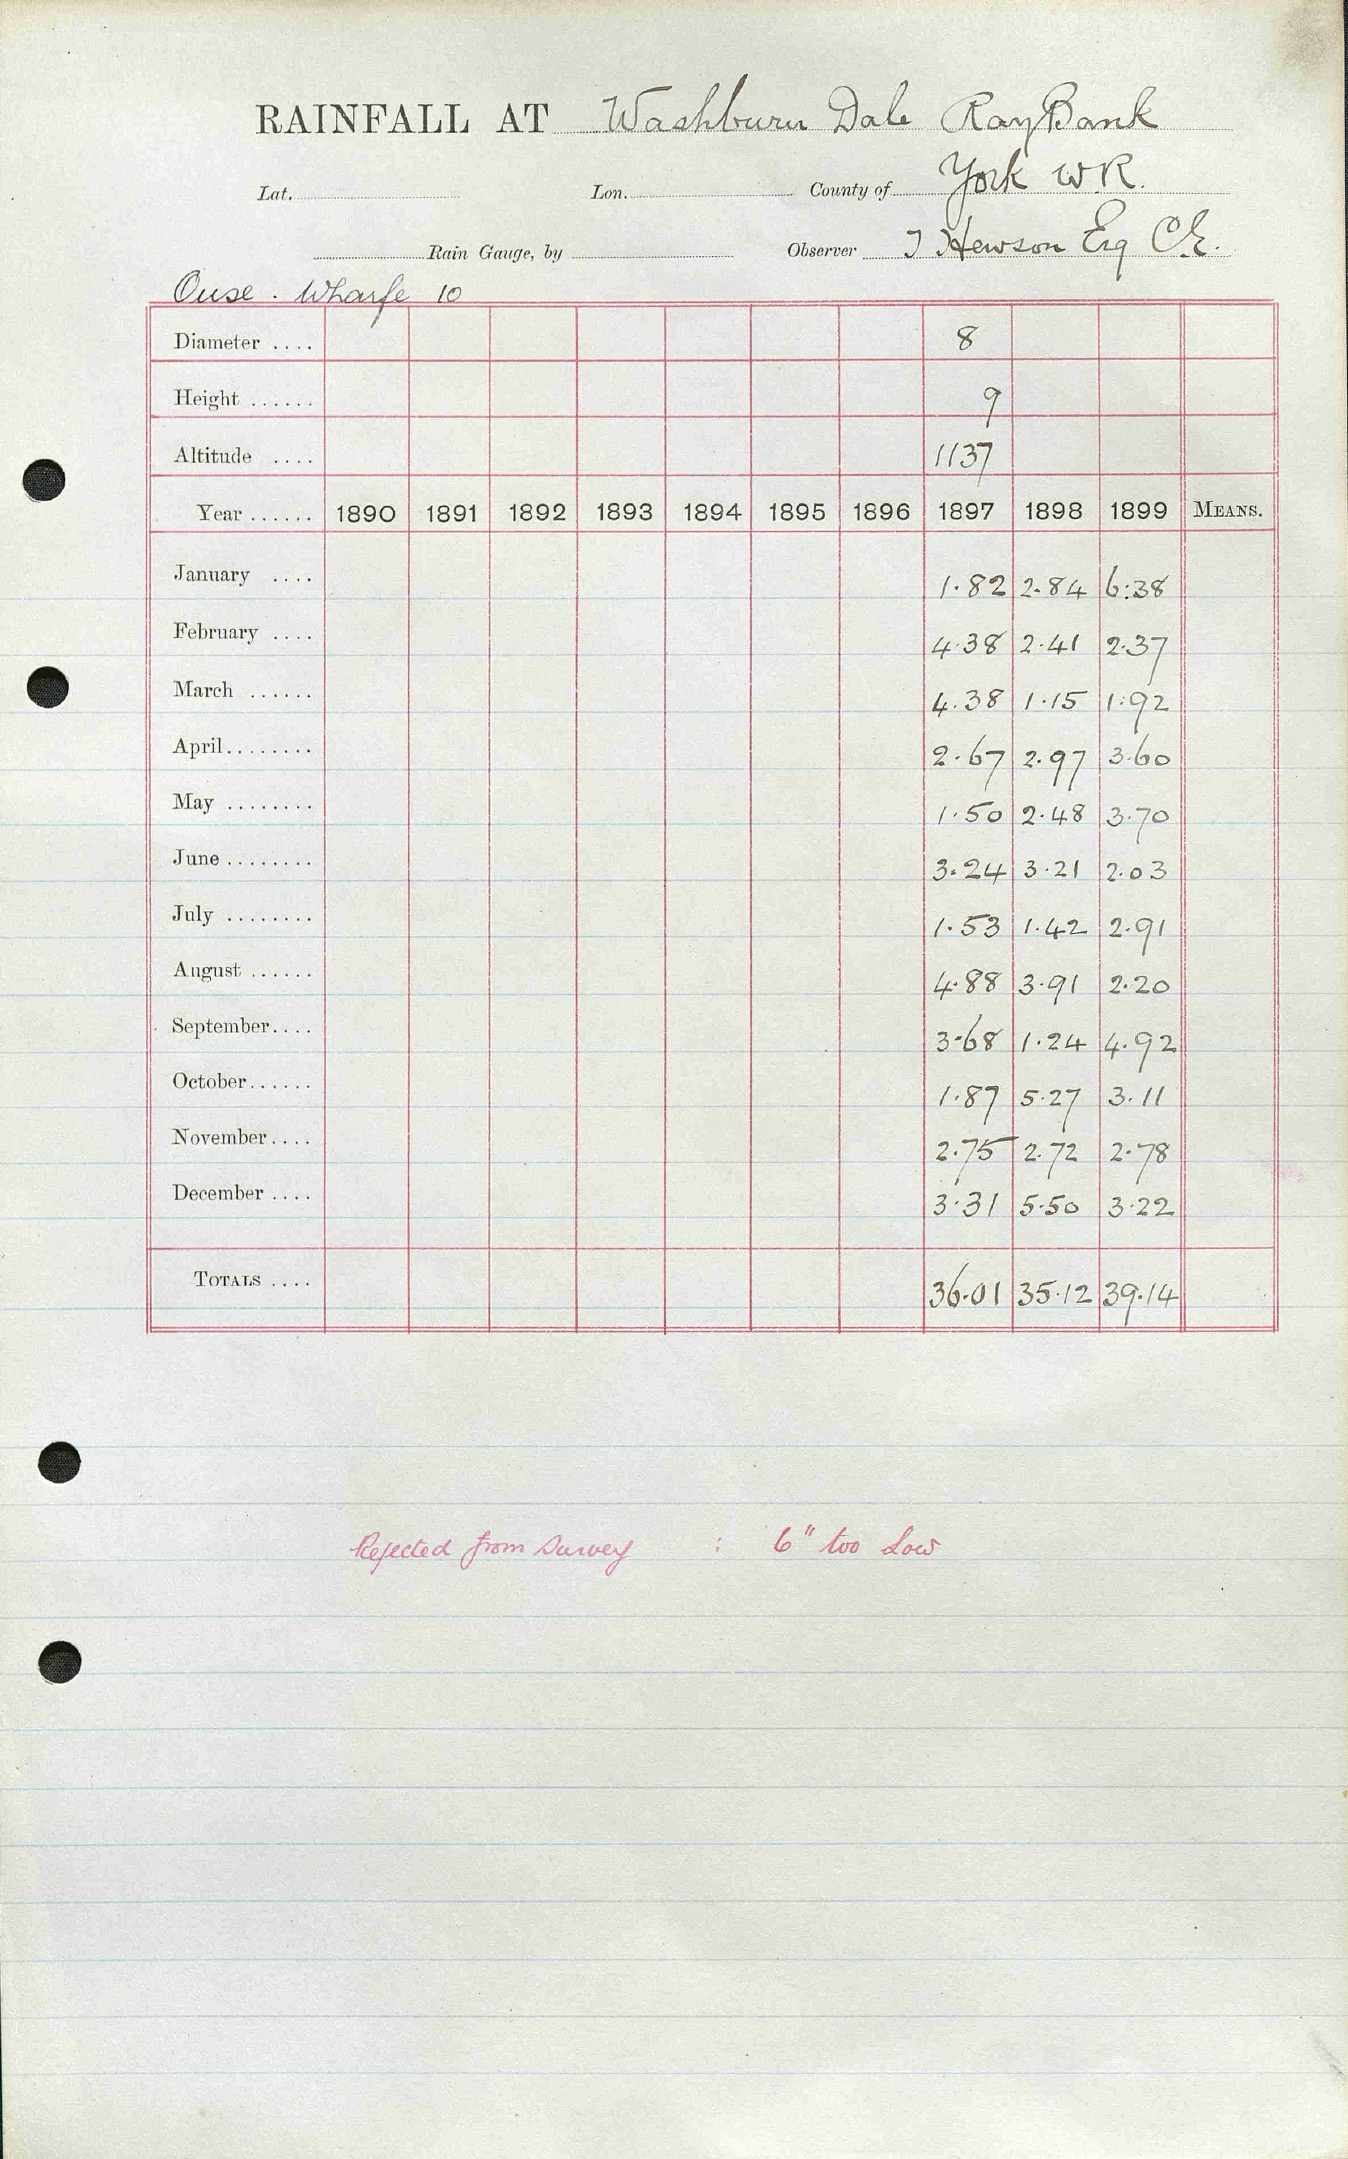 RAINFALL AT Washburn Dale Ray Bank
Lat. Lon. County of York W.R.
Rain Gauge, by Observer T Hewson Esq C.E.
Ouse . Wharfe 10
Diameter .... 8
Height ...... 9
Altitude .... 1137
Year ...... 1890 1891 1892 1893 1894 1895 1896 1897 1898 1899 MEANS.
January .... 1.82 2.84 6.38
February .... 4.38 2.41 2.37
March ...... 4.38 1.15 1.92
April ........ 2.67 2.97 3.60
May ........ 1.50 2.48 3.70
June ........ 3.24 3.21 2.03
July ........ 1.53 1.42 2.91
August ...... 4.88 3.91 2.20
September .... 3.68 1.24 4.92
October ...... 1.87 5.27 3.11
November .... 2.75 2.72 2.78
December .... 3.31 5.50 3.22
TOTALS .... 36.01 35.12 39.14
Rejected from survey : 6" too low